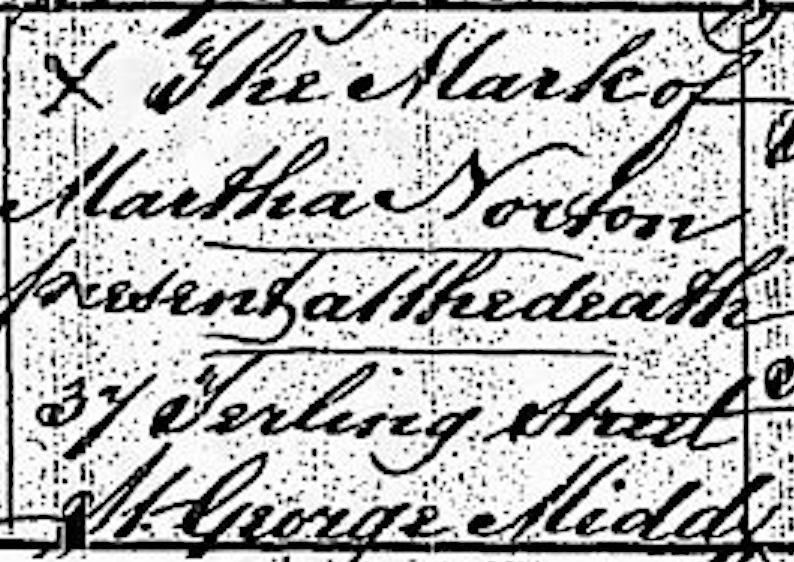 X The Mark of
Martha Norton
present at the death
37 Terling Street
St George Middx